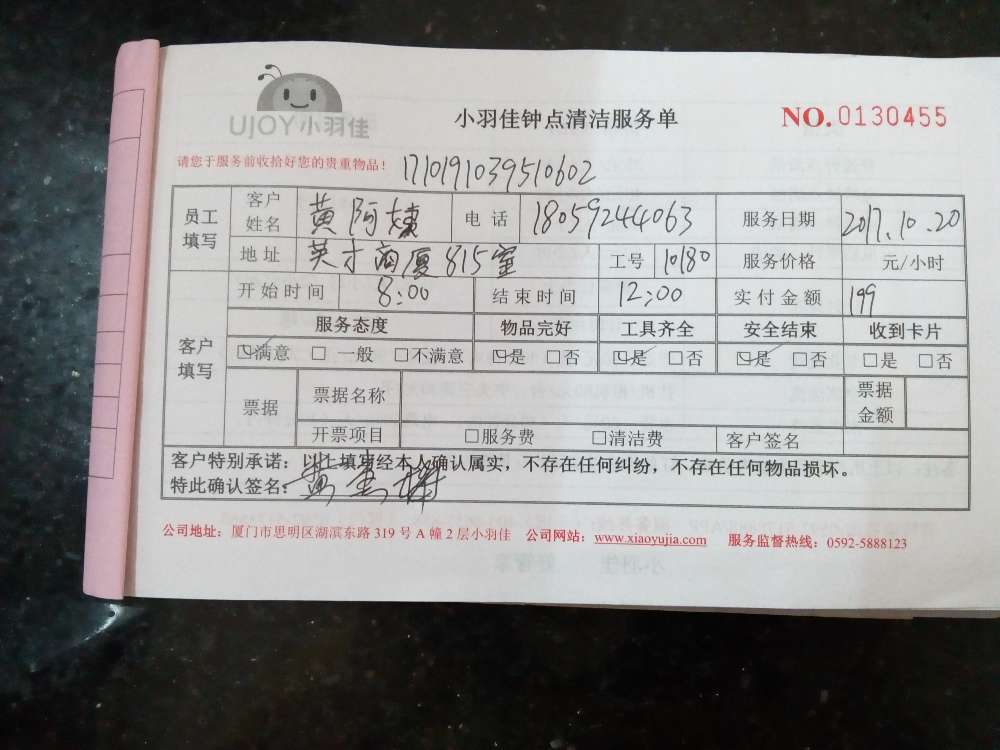 UJOY小羽佳
小羽佳钟点清洁服务单
NO.0130455
请您于服务前收拾好您的贵重物品!
1710191039510602
员工填写 客户姓名 黄阿姨 电话 18059244063 服务日期 2017.10.20
地址 英才商厦815室 工号 10180 服务价格 元/小时
客户填写 开始时间 8:00 结束时间 12:00 实付金额 199
服务态度 物品完好 工具齐全 安全结束 收到卡片
☑满意 □一般 □不满意 ☑是 □否 ☑是 □否 ☑是 □否 □是 □否
票据 票据名称 票据金额
开票项目 □服务费 □清洁费 客户签名
客户特别承诺:以上填写经本人确认属实,不存在任何纠纷,不存在任何物品损坏。
特此确认签名: 黄
公司地址:厦门市思明区湖滨东路 319 号 A 幢 2 层小羽佳 公司网站:www.xiaoyujia.com 服务监督热线:0592-5888123